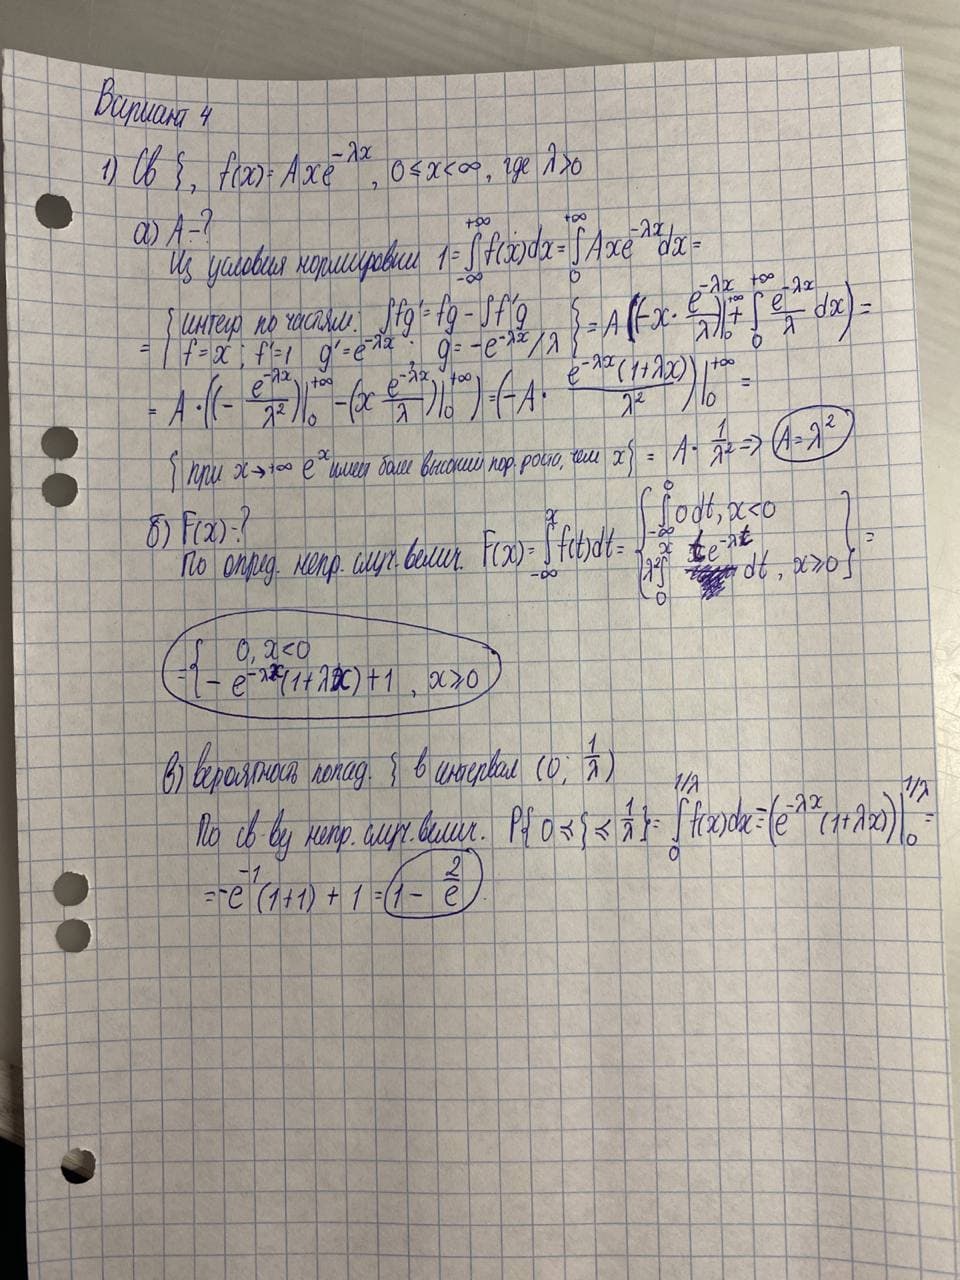 Вариант 4
1) Св ξ, f(x) = A x e^{-λx}, 0 ≤ x < ∞, где λ > 0
а) A - ?
Из условия нормировки 1 = ∫_{-∞}^{+∞} f(x)dx = ∫_0^{+∞} A x e^{-λx} dx =
= { интегр по частям: ∫fg' = fg - ∫f'g
f = x; f' = 1 g' = e^{-λx}; g = -e^{-λx}/λ } = A (-x · e^{-λx}/λ |_0^{+∞} + ∫_0^{+∞} e^{-λx}/λ dx) =
= A · ((- e^{-λx}/λ²)|_0^{+∞} - (x e^{-λx}/λ)|_0^{+∞}) = (-A · e^{-λx}(1+λx)/λ²)|_0^{+∞} =
{при x → +∞ e^x имеет более высокий пор. роста, чем x} = A · 1/λ² => A = λ²
б) F(x) - ?
По опред. непр. случ. велич. F(x) = ∫_{-∞}^x f(t)dt = { ∫_{-∞}^0 0 dt, x < 0
λ² ∫_0^x t e^{-λt} dt, x ≥ 0 } =
= { 0, x < 0
- e^{-λx}(1+λx) + 1, x ≥ 0
в) вероятность попад. ξ в интервал (0; 1/λ)
По св-ву непр. случ. велич. P{0 ≤ ξ ≤ 1/λ} = ∫_0^{1/λ} f(x)dx = (e^{-λx}(1+λx))|_0^{1/λ} =
= -e^{-1}(1+1) + 1 = 1 - 2/e